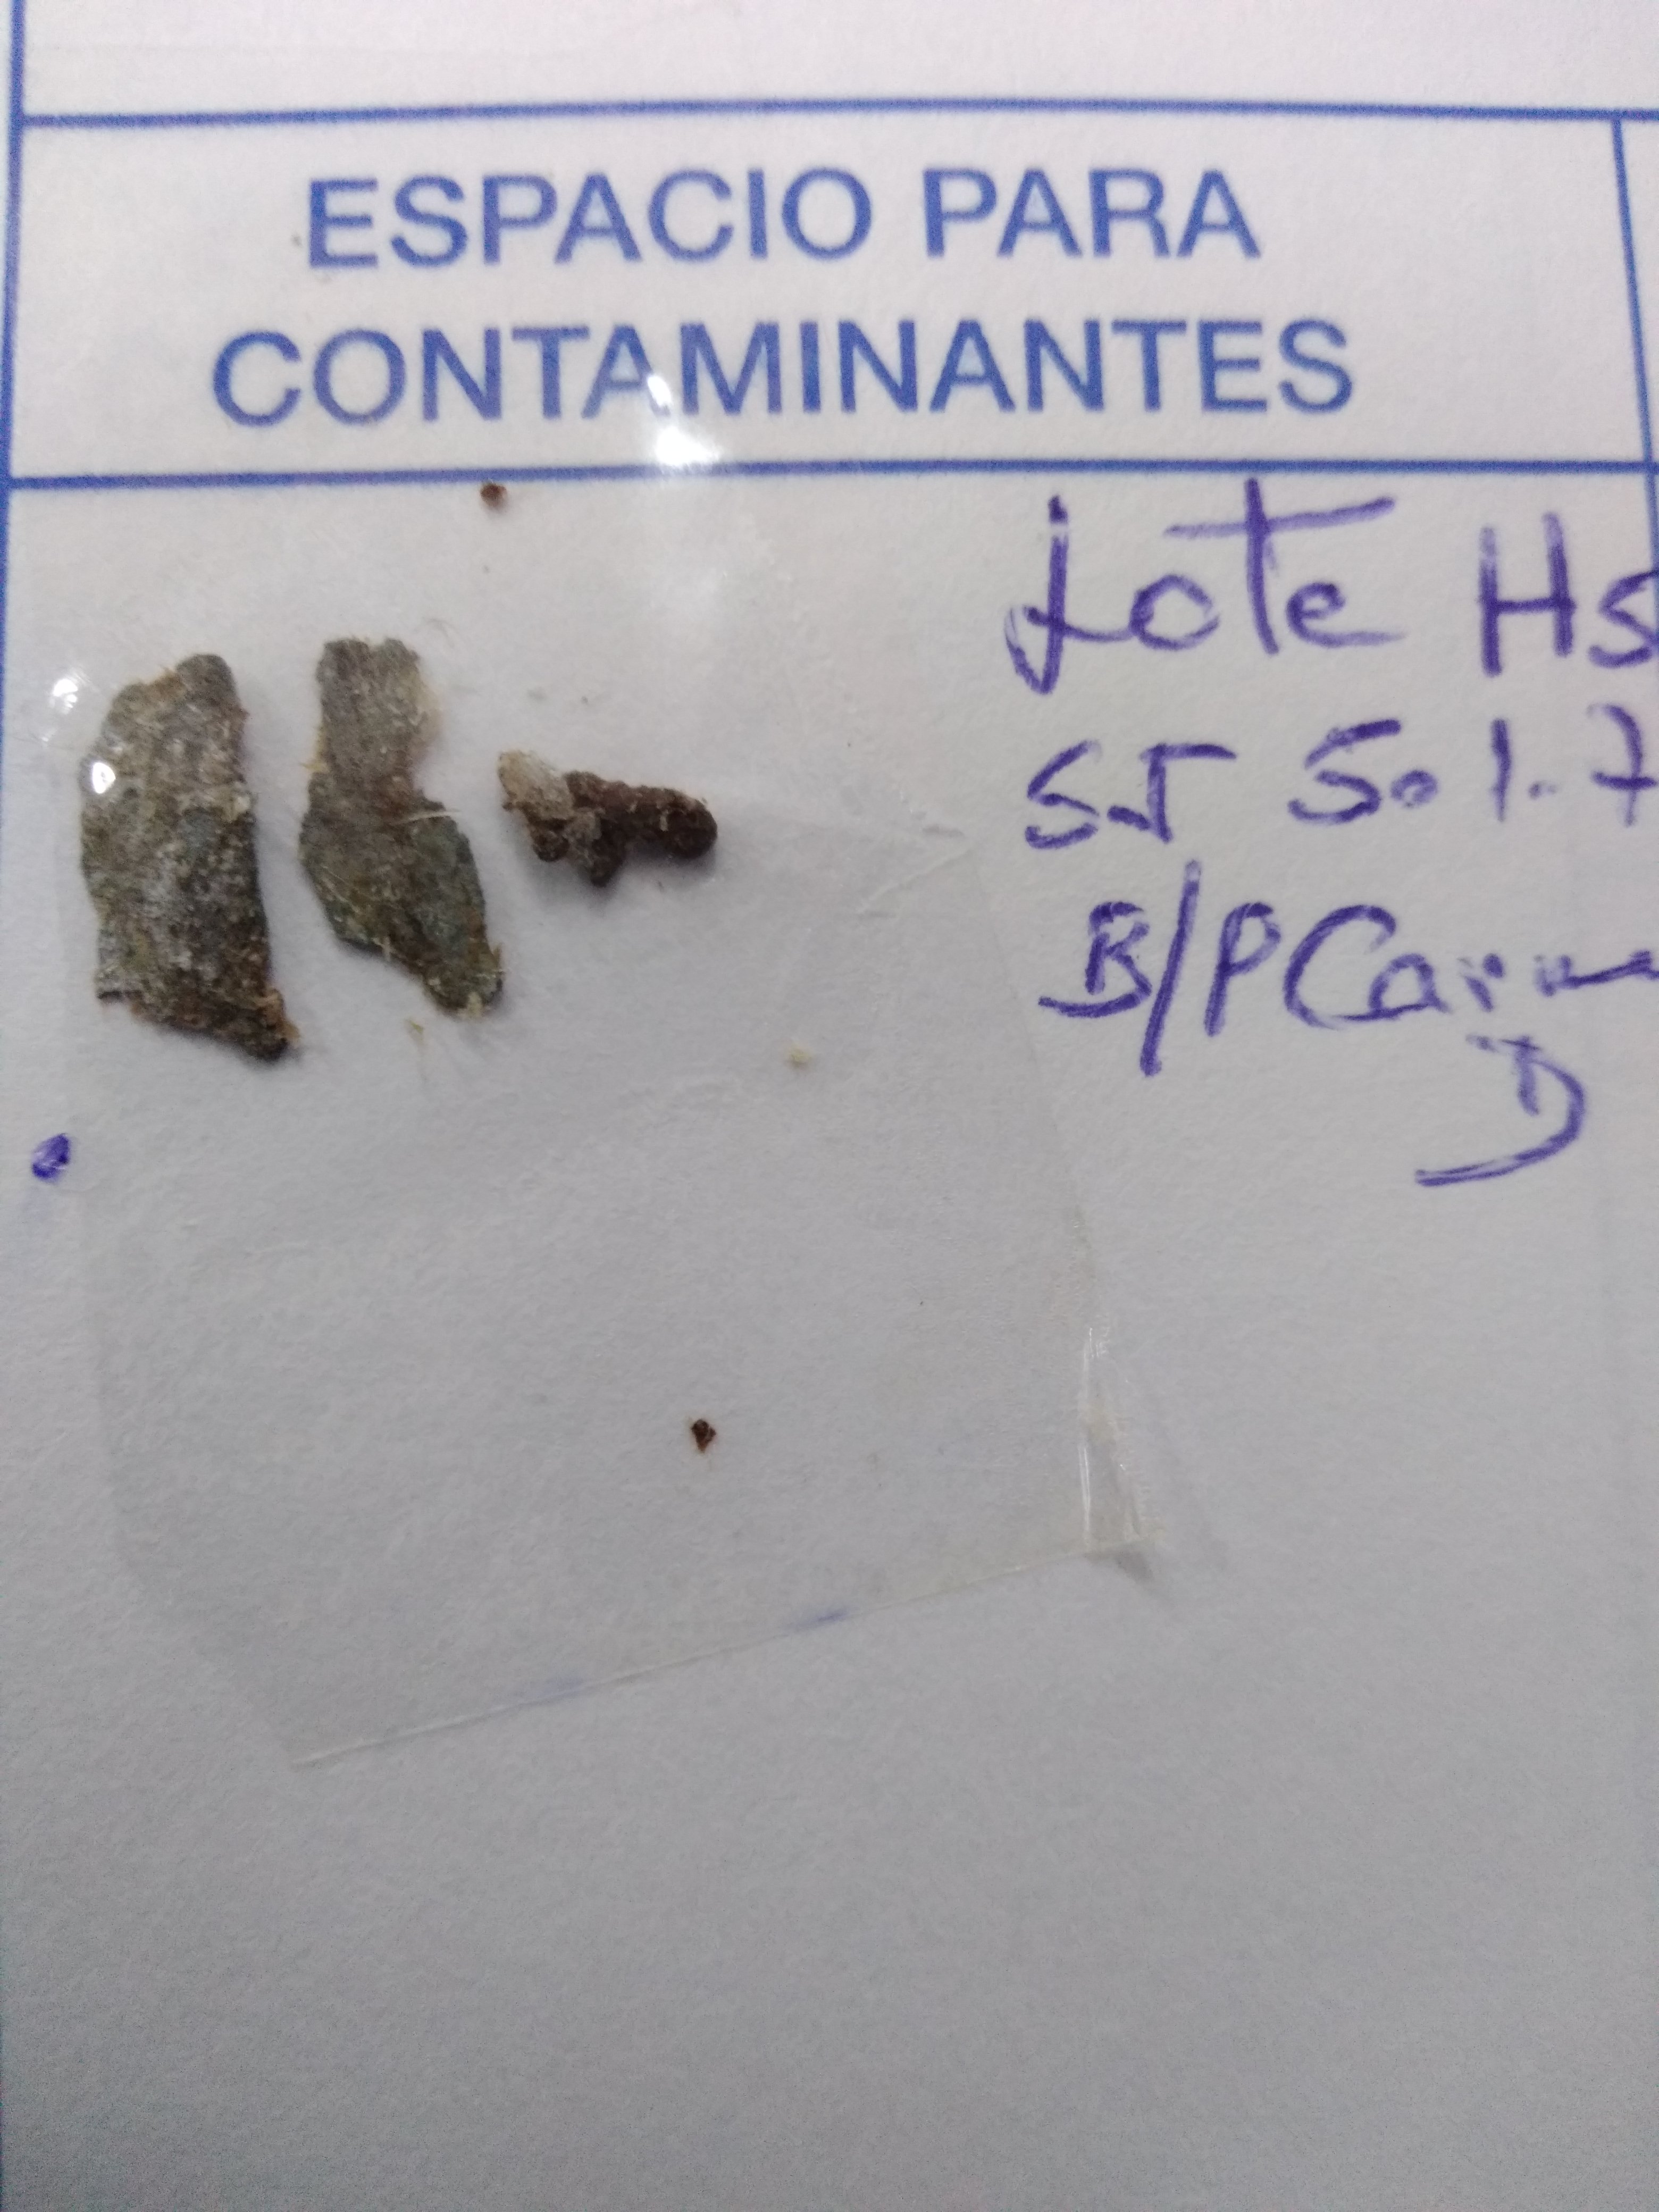 ESPACIO PARA
CONTAMINANTES
Lote HS
SJ 5.1.7
B/P Carm
D